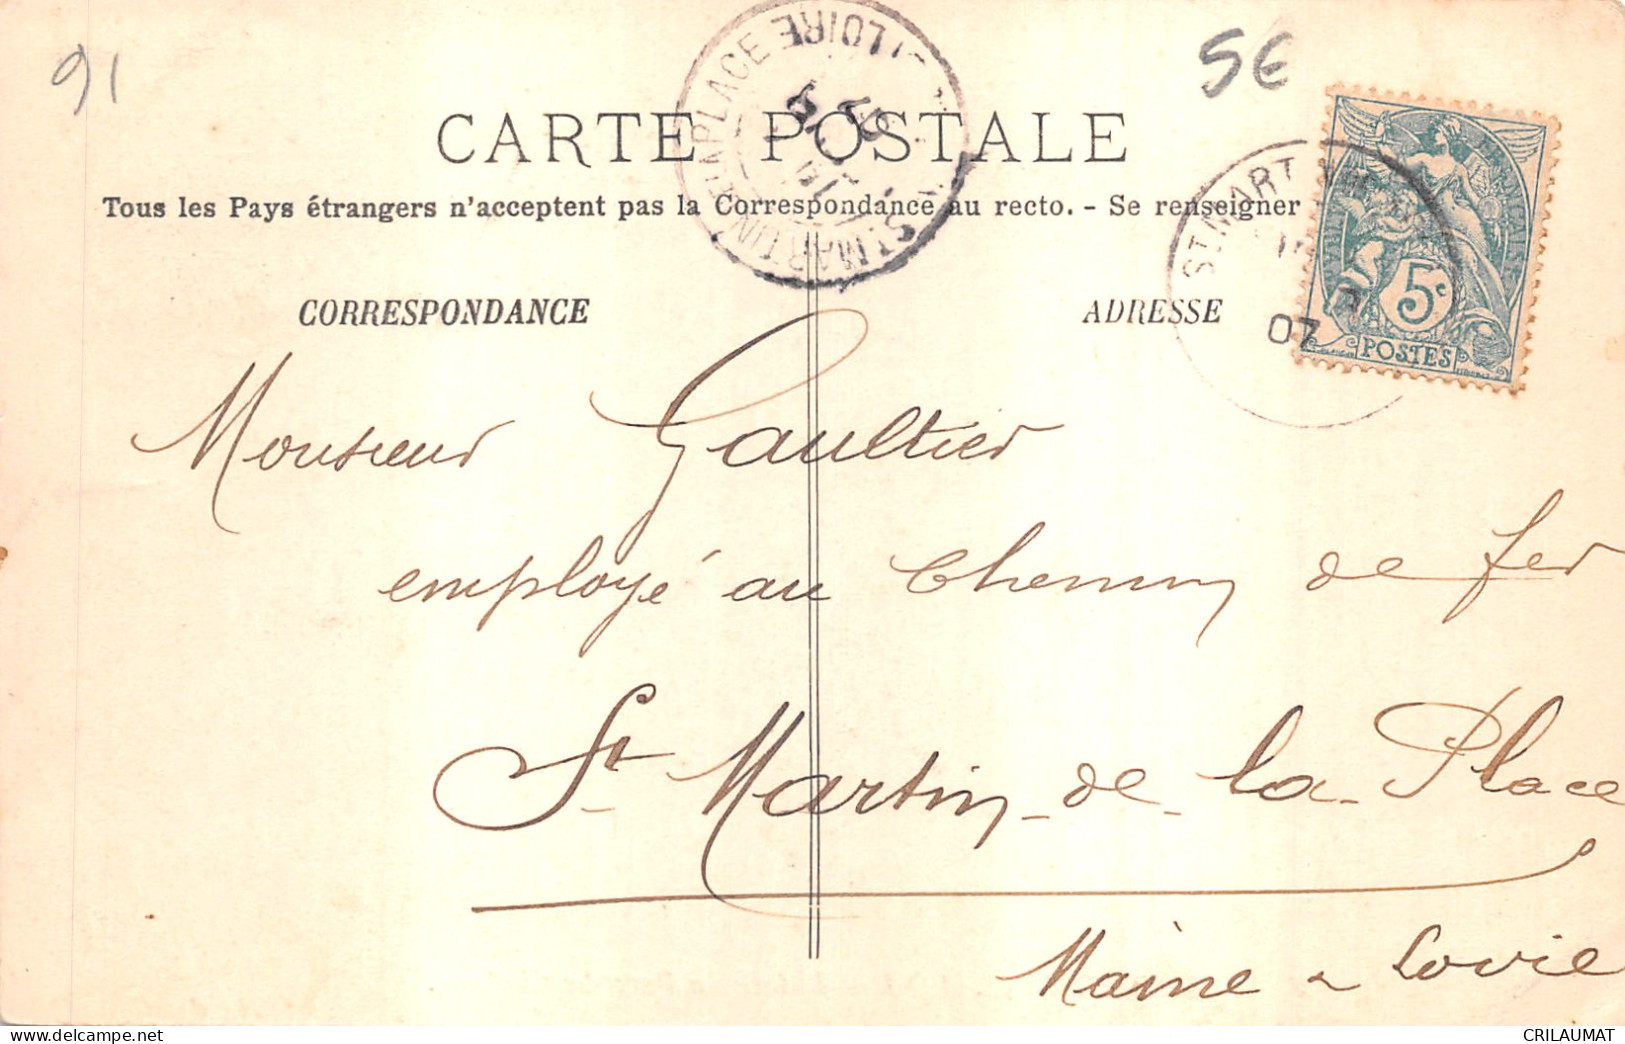 91
5€
CARTE POSTALE
Tous les Pays étrangers n'acceptent pas la Correspondance au recto. - Se renseigner
ST MARTIN LAPLACE LOIRE
ST. MART
07
5c
POSTES
CORRESPONDANCE
ADRESSE
Monsieur Gaultier
employé au Chemin de fer
St Martin-de-la-Place
Maine & Loire
CRILAUMAT